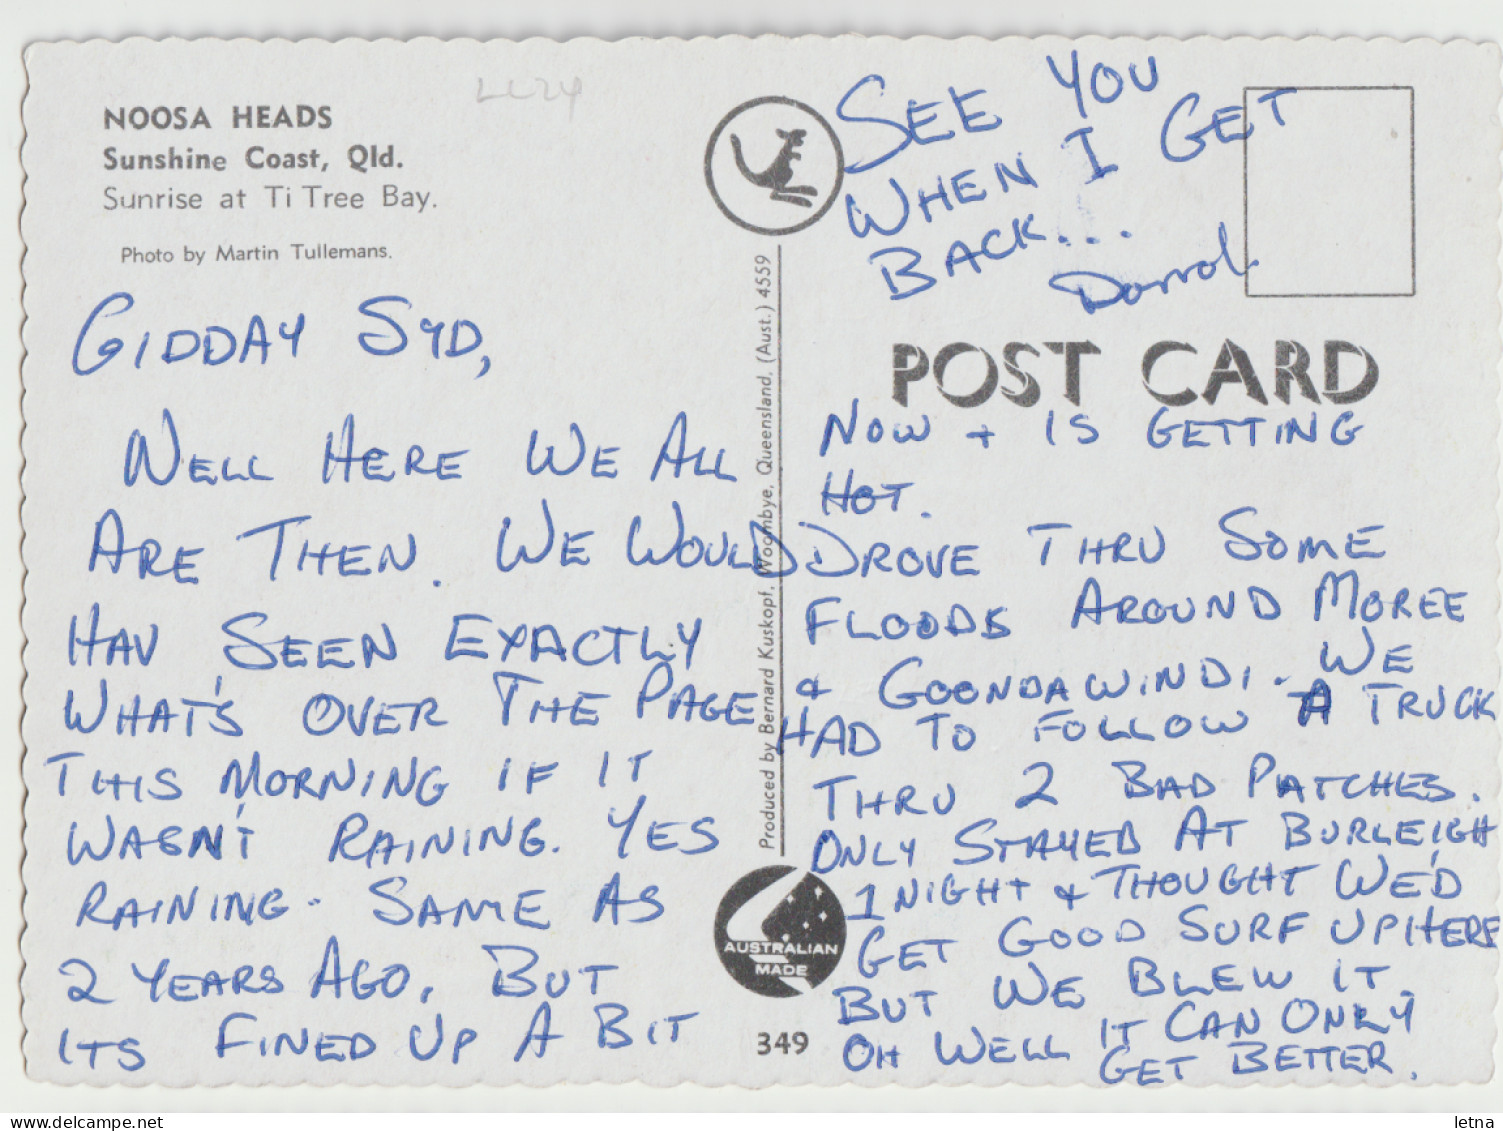 NOOSA HEADS
Sunshine Coast, Qld.
Sunrise at Ti Tree Bay.
Photo by Martin Tullemans.
GIDDAY SYD,
WELL HERE WE ALL
ARE THEN. WE WOULD
HAV SEEN EXACTLY
WHAT'S OVER THE PAGE
THIS MORNING IF IT
WASN'T RAINING. YES
RAINING. SAME AS
2 YEARS AGO. BUT
ITS FINED UP A BIT
NOW + IS GETTING
HOT.
DROVE THRU SOME
FLOODS AROUND MOREE
& GOONDAWINDI. WE
HAD TO FOLLOW A TRUCK
THRU 2 BAD PATCHES.
ONLY STAYED AT BURLEIGH
1 NIGHT & THOUGHT WE'D
GET GOOD SURF UP HERE
BUT WE BLEW IT.
OH WELL IT CAN ONLY
GET BETTER.
SEE YOU
WHEN I GET
BACK...
POST CARD
Produced by Bernard Kuskopf, Woombye, Queensland, (Aust.) 4559
AUSTRALIAN
MADE
349
www.delcampe.net
letna